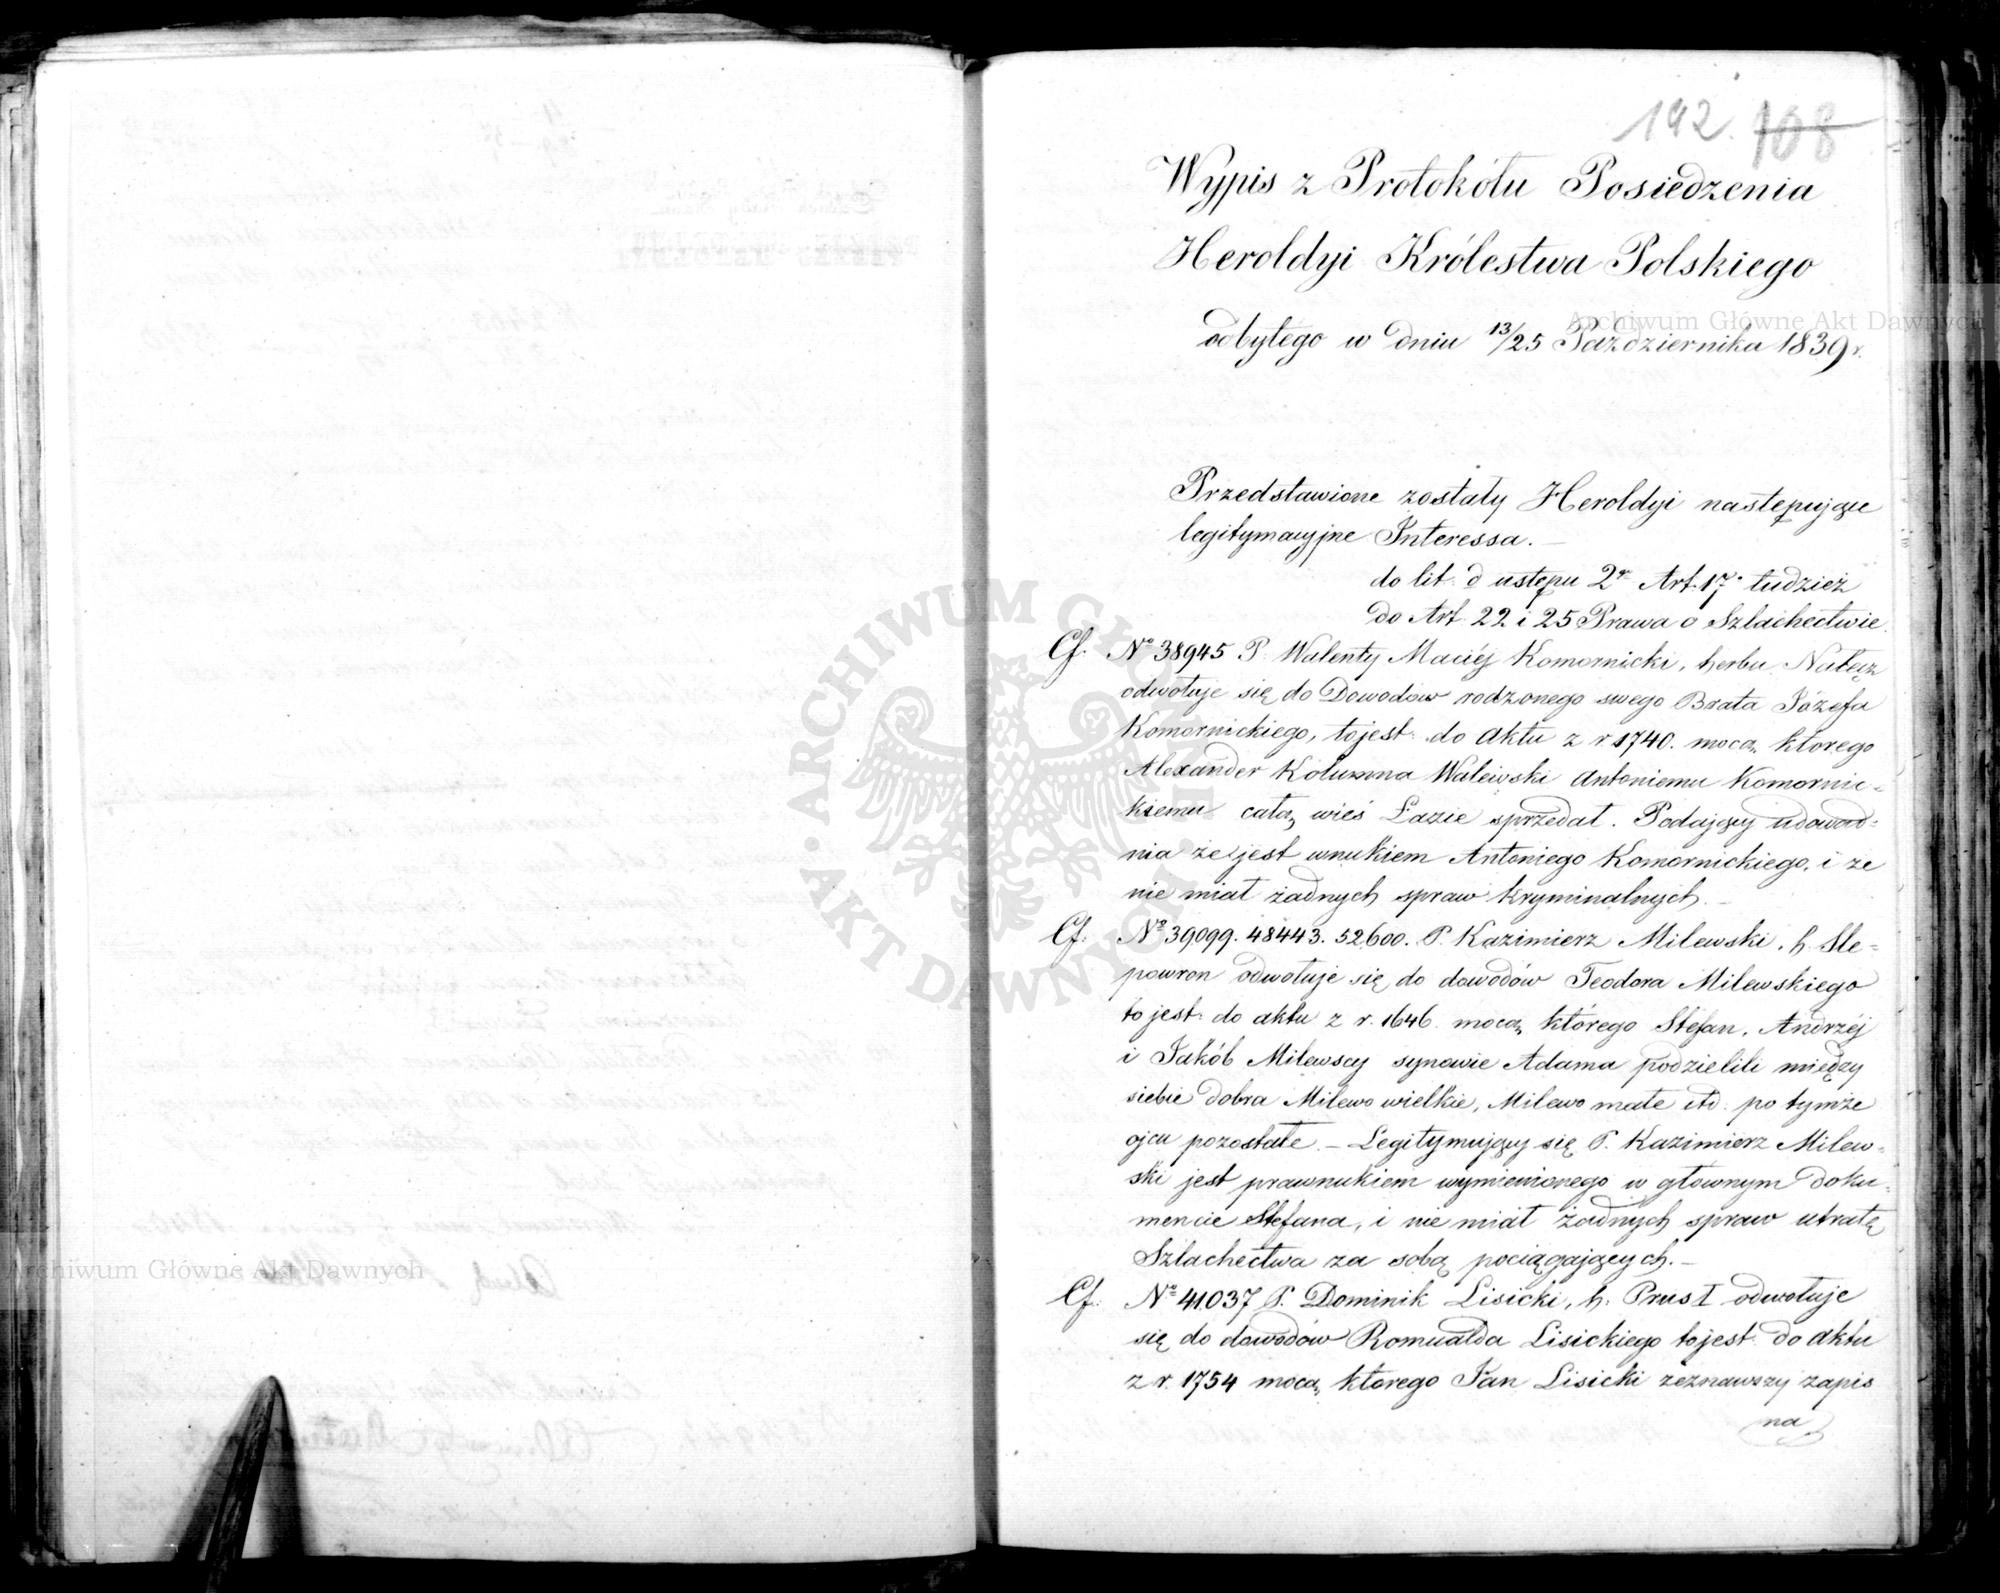 192. 108
Wypis z Protokółu Posiedzenia
Heroldyi Królestwa Polskiego
odbytego w dniu 13/25 Października 1839 r.
Przedstawione zostały Heroldyi następujące
legitymacyjne Interessa. —
do lit. d ustępu 2º Art. 17. tudzież
do Art. 22 i 25 Prawa o Szlachectwie.
Cf. Nº 38945 P. Walenty Maciéj Komornicki, herbu Nałęcz
odwołuje się do Dowodów rodzonego swego Brata Józefa
Komornickiego, to jest: do Aktu z r. 1740. mocą którego
Alexander Kolumna Walewski Antoniemu Komornic=
kiemu całą wieś Łazie sprzedał. Podający udowod=
nia że jest wnukiem Antoniego Komornickiego, i że
nie miał żadnych spraw kryminalnych. —
Cf. Nº 39099. 48443. 52600. P. Kazimierz Milewski, h. Śle=
powron odwołuje się do dowodów Teodora Milewskiego
to jest: do aktu z r. 1646. mocą którego Stefan, Andrzéj
i Jakób Milewscy synowie Adama podzielili między
siebie dobra Milewo wielkie, Milewo małe itd. po tymże
ojcu pozostałe. — Legitymujący się P. Kazimierz Milew=
ski jest prawnukiem wymienionego w głównym doku=
mencie Stefana, i nie miał żadnych spraw utratę
Szlachectwa za sobą pociągających. —
Cf. Nº 41037 P. Dominik Lisicki, h. Prus I odwołuje
się do dowodów Romualda Lisickiego to jest: do aktu
z r. 1754 mocą którego Jan Lisicki zeznawszy zapis
na
Archiwum Główne Akt Dawnych
Archiwum Główne Akt Dawnych
· ARCHIWUM GŁÓWNE · AKT DAWNYCH